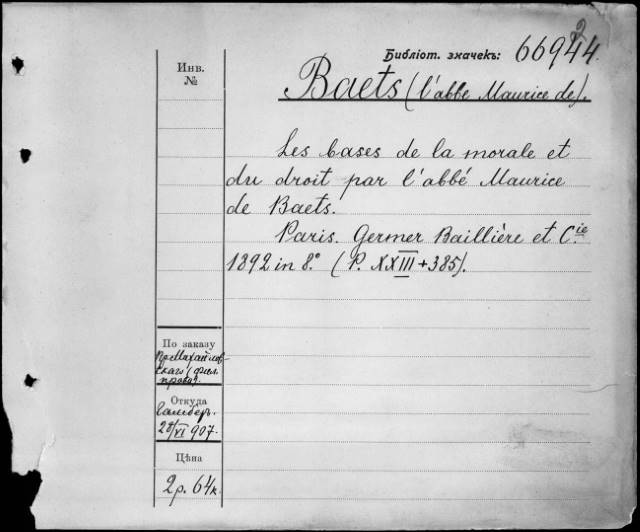 2
Библiот. значекъ: 66944.
Инв.
№
Baets (l'abbe Maurice de).
Les bases de la morale et
du droit par l'abbé Maurice
de Baets.
Paris. Germer Baillière et C.ie
1892 in 8.° (P. XXIII+385).
По заказу
Откуда
Гамбер.
/VI 907.
Цѣна
2 р. 64 к.